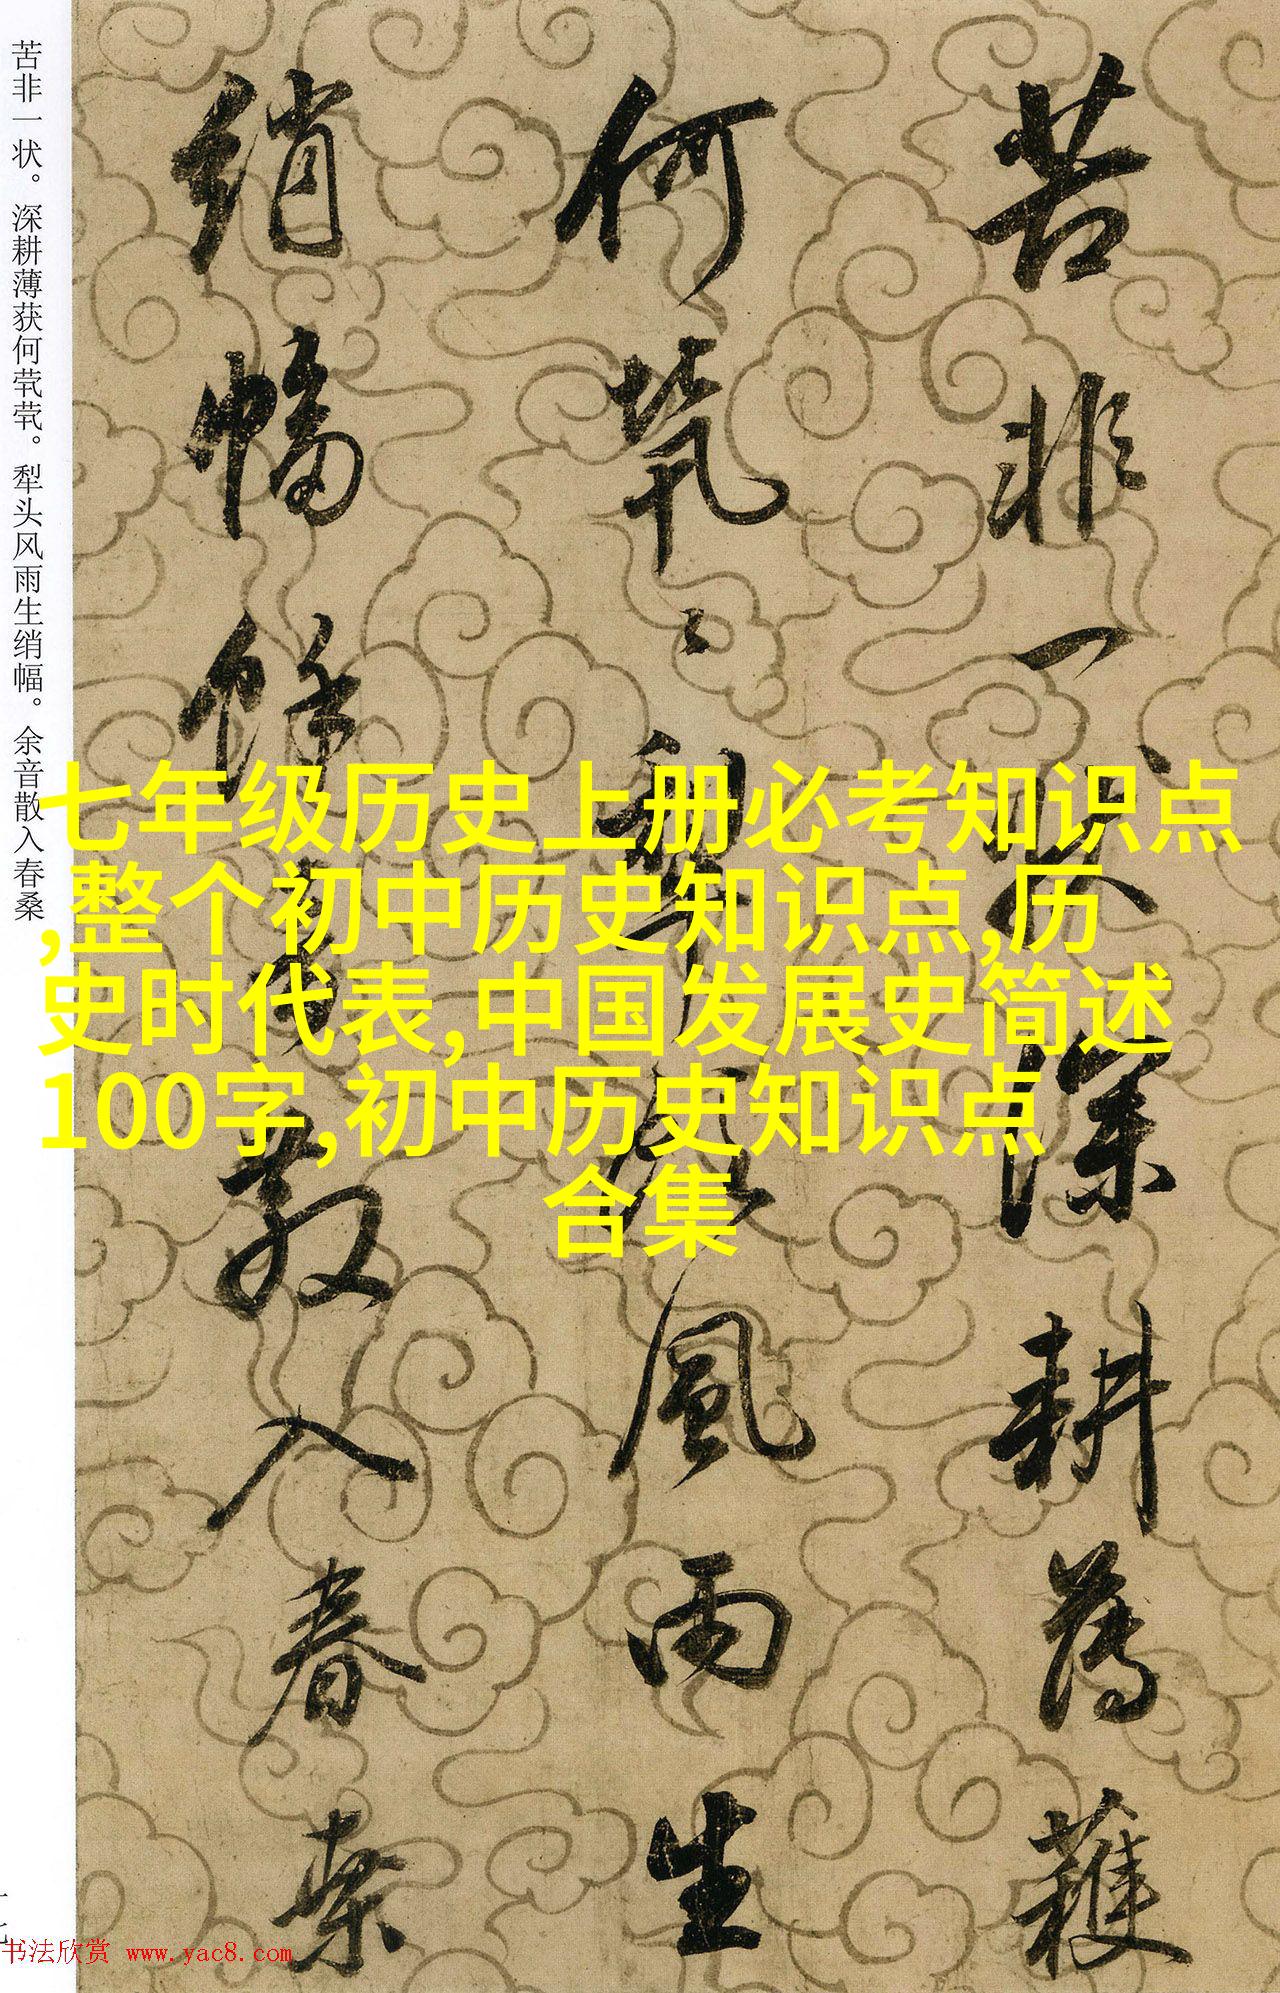 七年级历史上册必考知识点
,整个初中历史知识点,历
史时代表,中国发展史简述
100字,初中历史知识点
合集
苦非一状深耕薄穫
何茕々犁頭風雨生
綃幅餘音散入春桑
苦非一状。深耕薄获何茕茕。犁头风雨生绡幅。余音散入春桑
书法欣赏 www.yac8.com